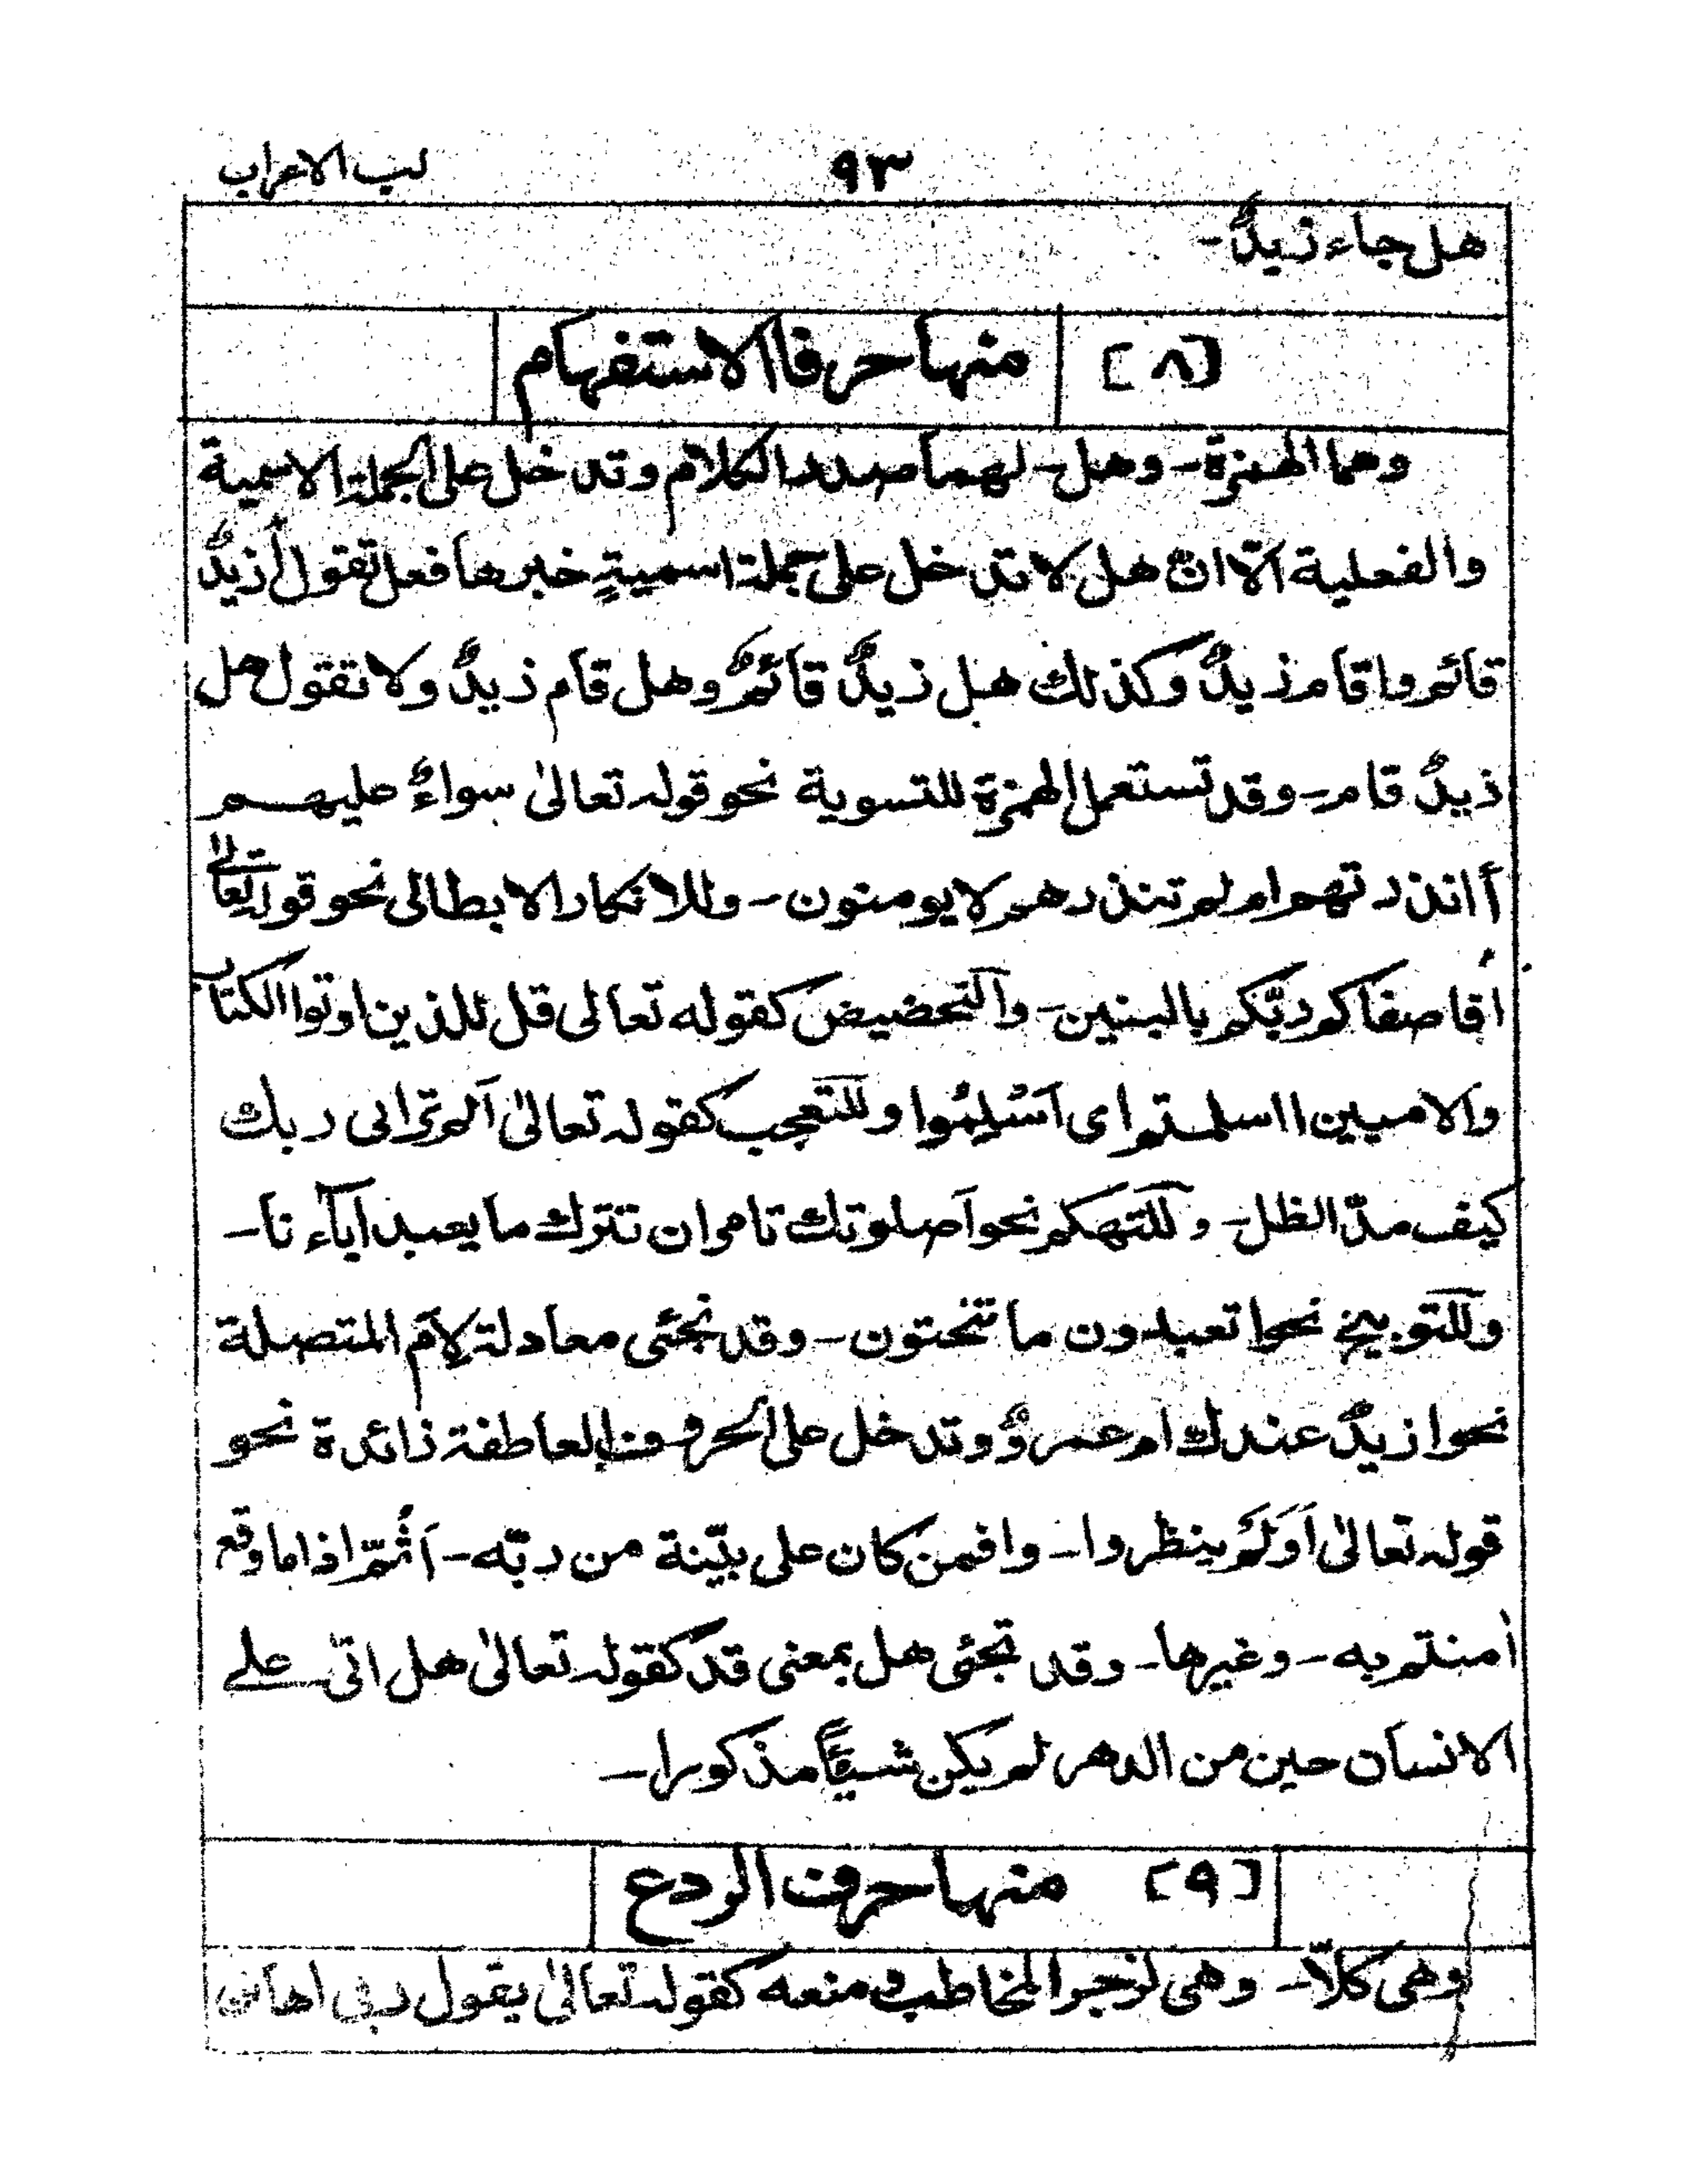 لب الاعراب
٩٣
هل جاء زيدٌ-
[٨] منها حرفا الاستفهام
وهما الهمزة- وهل- لهما صدر الكلام وتدخل على الجملة الاسمية
والفعلية الّا انّ هل لا تدخل على جملة اسميةٍ خبرها فعل تقول أزيدٌ
قائم واقام زيدٌ وكذلك هل زيدٌ قائمٌ وهل قام زيدٌ ولا تقول هل
زيدٌ قام- وقد تستعمل الهمزة للتسوية نحو قوله تعالىٰ سواءٌ عليهم
أانذرتهم ام لم تنذرهم لا يومنون- وللانكار الابطالى نحو قوله تعالىٰ
افاصفاكم ربّكم بالبنين- والتحضيض كقوله تعالى قل للذين اوتوا الكتاب
والاميين ااسلمتم اى اَسْلِمُوا وللتعجب كقوله تعالىٰ اَلم ترَ الى ربك
كيف مدّ الظل- و للتهكم نحو اَصلوتك تامر ان نترك ما يعبد اٰباءنا-
وللتوبيخ نحو اتعبدون ما تنحتون- وقد تجئى معادلة لِاَم المتصلة
نحو ازيدٌ عندك ام عمروٌ وتدخل على الحروف العاطفة زائدة نحو
قوله تعالىٰ اَوَلَمْ ينظروا- وافمن كان على بيّنة من ربّه- اَثُمّ اذا ما وقع
اٰمنتم به- وغيرها- وقد تجئى هل بمعنى قد كقوله تعالىٰ هل اتىٰ على
الانسان حين من الدهر لم يكن شيئًا مذكورا-
[٩] منها حرف الردع
وهى كلّا- وهى لزجر المخاطب و منعه كقوله تعالىٰ يقول ربى اهانن